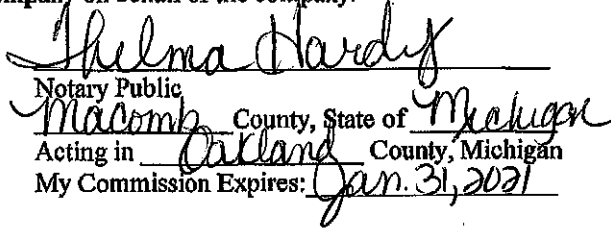 company on behalf of the company.
Thelma Hardy
Notary Public
Macomb County, State of Michigan
Acting in Oakland County, Michigan
My Commission Expires: Jan. 31, 2021